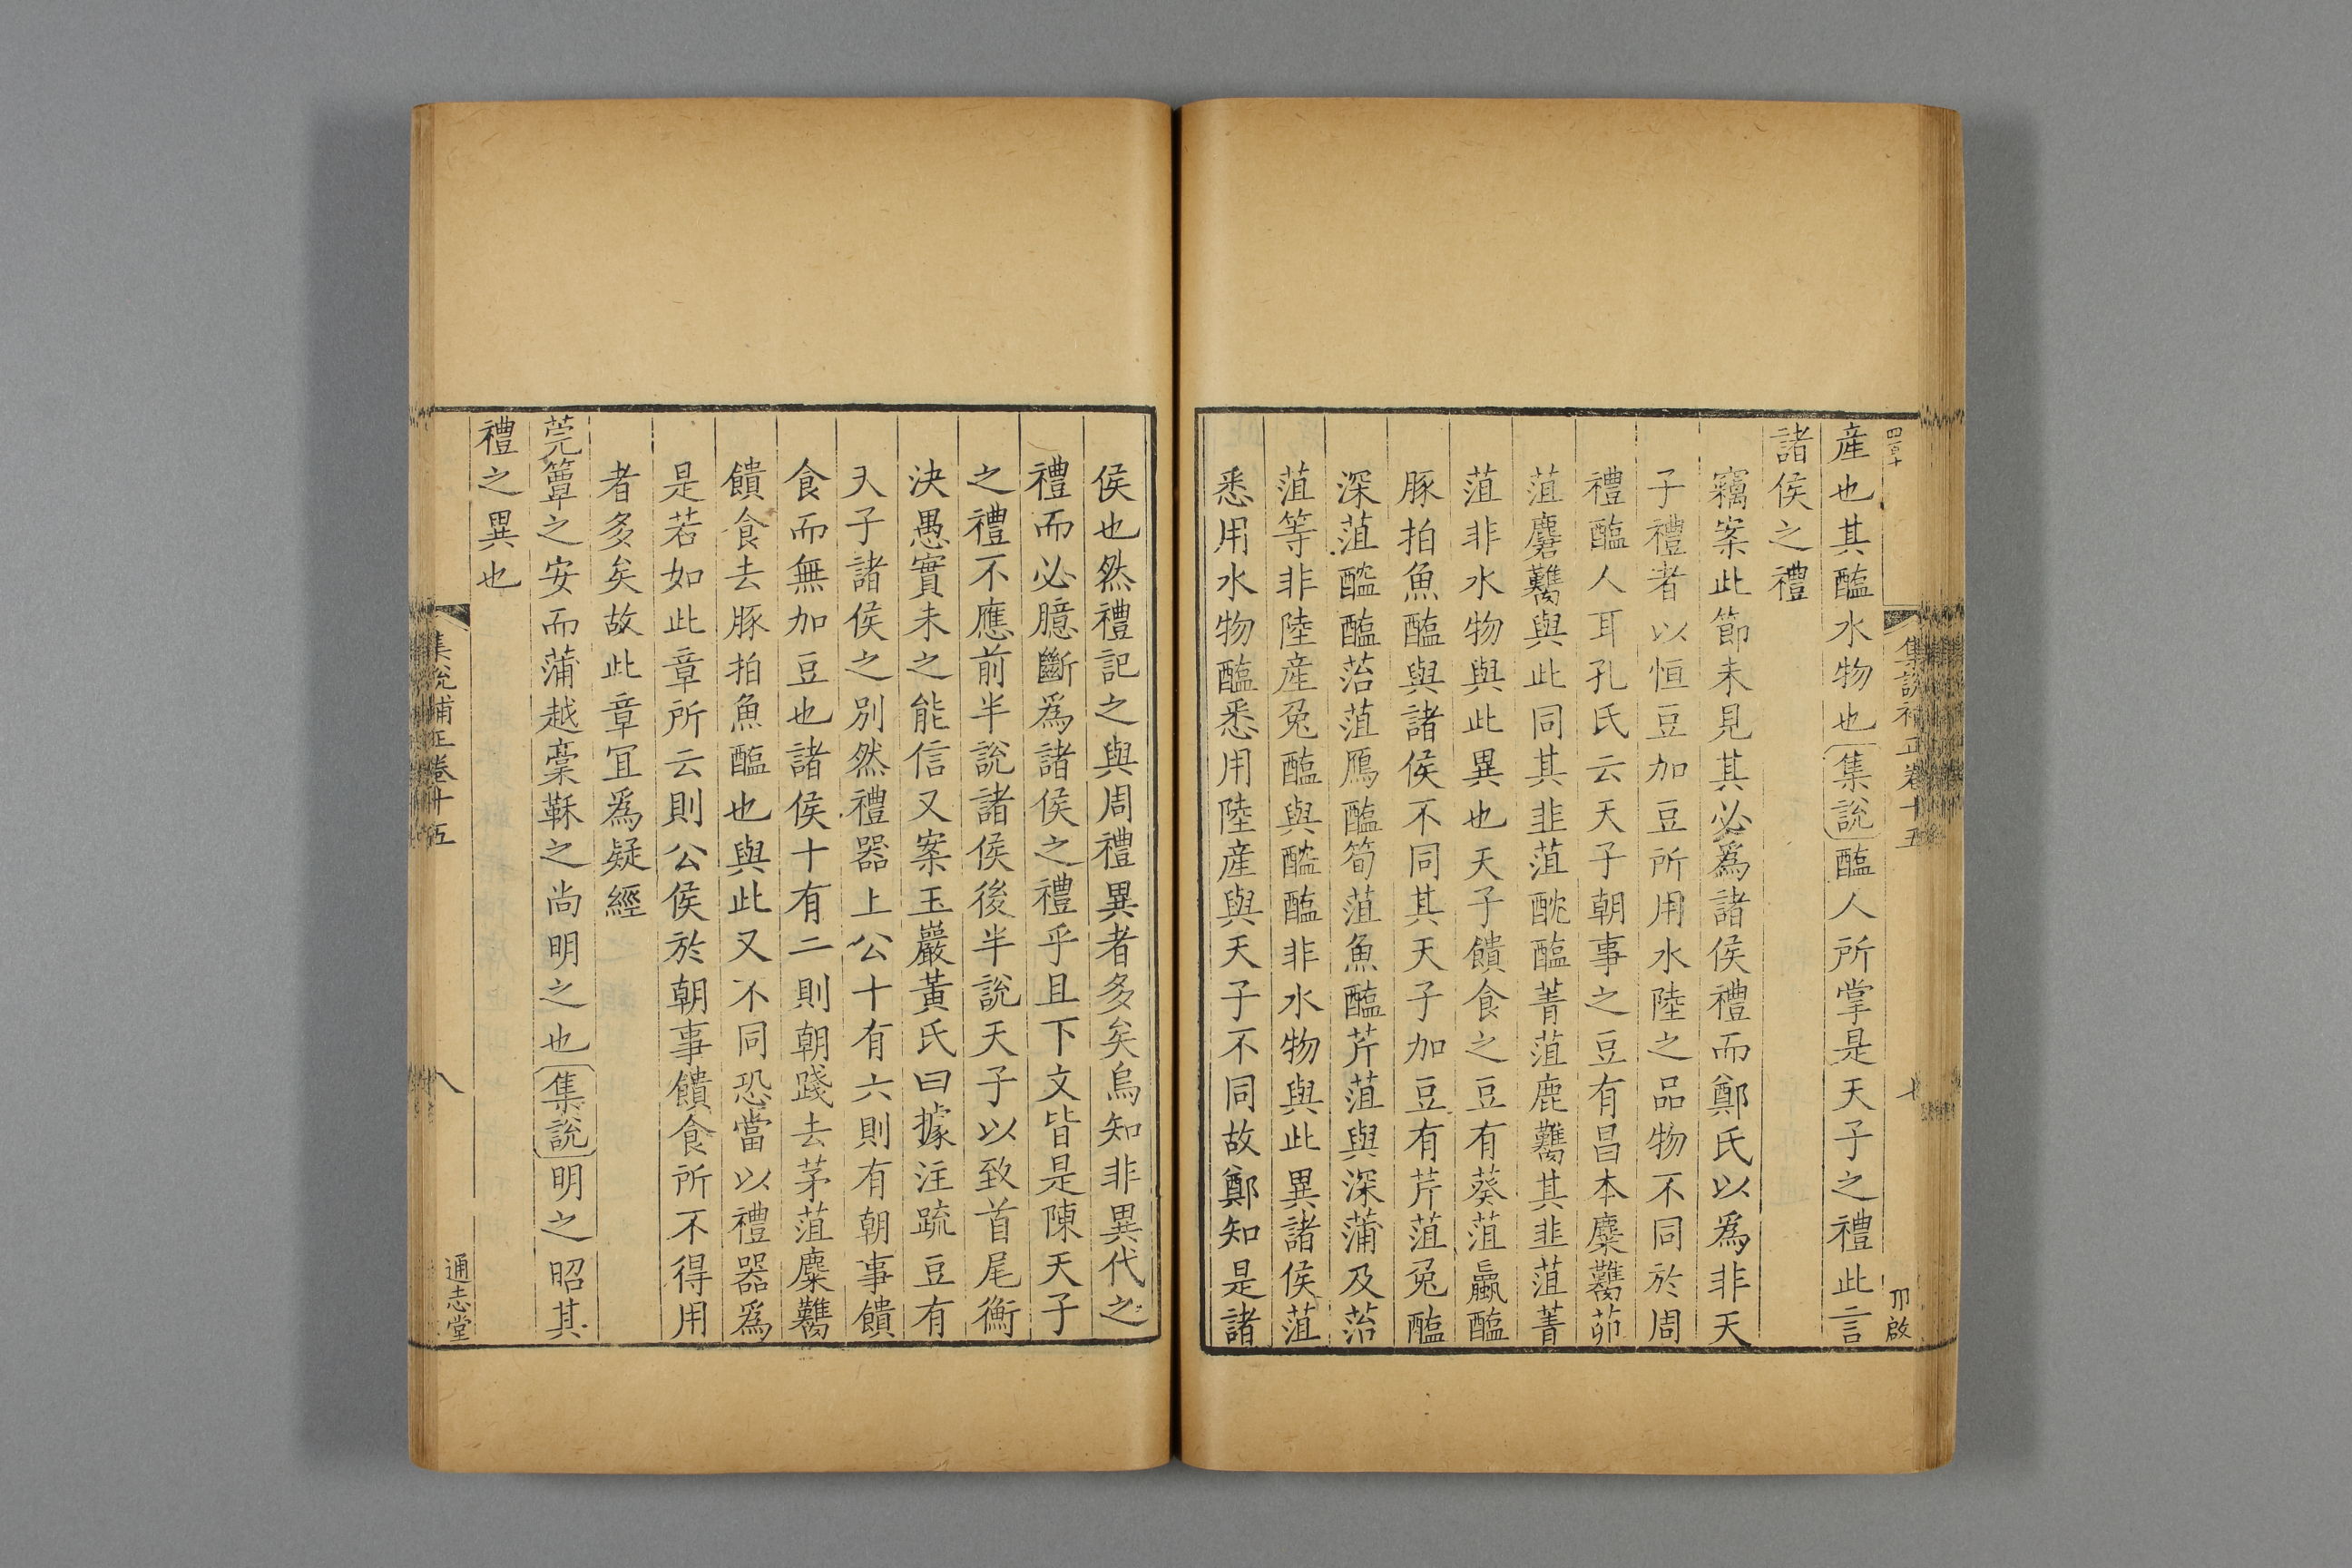 集說補正卷十五
產也其醢水物也集說醢人所掌是天子之禮此言
諸侯之禮
竊案此節未見其必爲諸侯禮而鄭氏以爲非天
子禮者以恒豆加豆所用水陸之品物不同於周
禮醢人耳孔氏云天子朝事之豆有昌本麋臡茆
菹麏臡與此同其韭菹醓醢菁菹鹿臡其韭菹菁
菹非水物與此異也天子饋食之豆有葵菹蠃醢
豚拍魚醢與諸侯不同其天子加豆有芹菹兔醢
深菹醓醢菭菹鴈醢筍菹魚醢芹菹與深蒲及菭
菹等非陸產兔醢與醓醢非水物與此異諸侯菹
悉用水物醢悉用陸產與天子不同故鄭知是諸
侯也然禮記之與周禮異者多矣烏知非異代之
禮而必臆斷爲諸侯之禮乎且下文皆是陳天子
之禮不應前半說諸侯後半說天子以致首尾衡
決愚實未之能信又案玉巖黃氏曰據注疏豆有
天子諸侯之別然禮器上公十有六則有朝事饋
食而無加豆也諸侯十有二則朝踐去茅菹麋臡
饋食去豚拍魚醢也與此又不同恐當以禮器爲
是若如此章所云則公侯於朝事饋食所不得用
者多矣故此章宜爲疑經
莞簟之安而蒲越稾鞂之尚明之也集說明之昭其
禮之異也
集說補正卷十五
八
通志堂